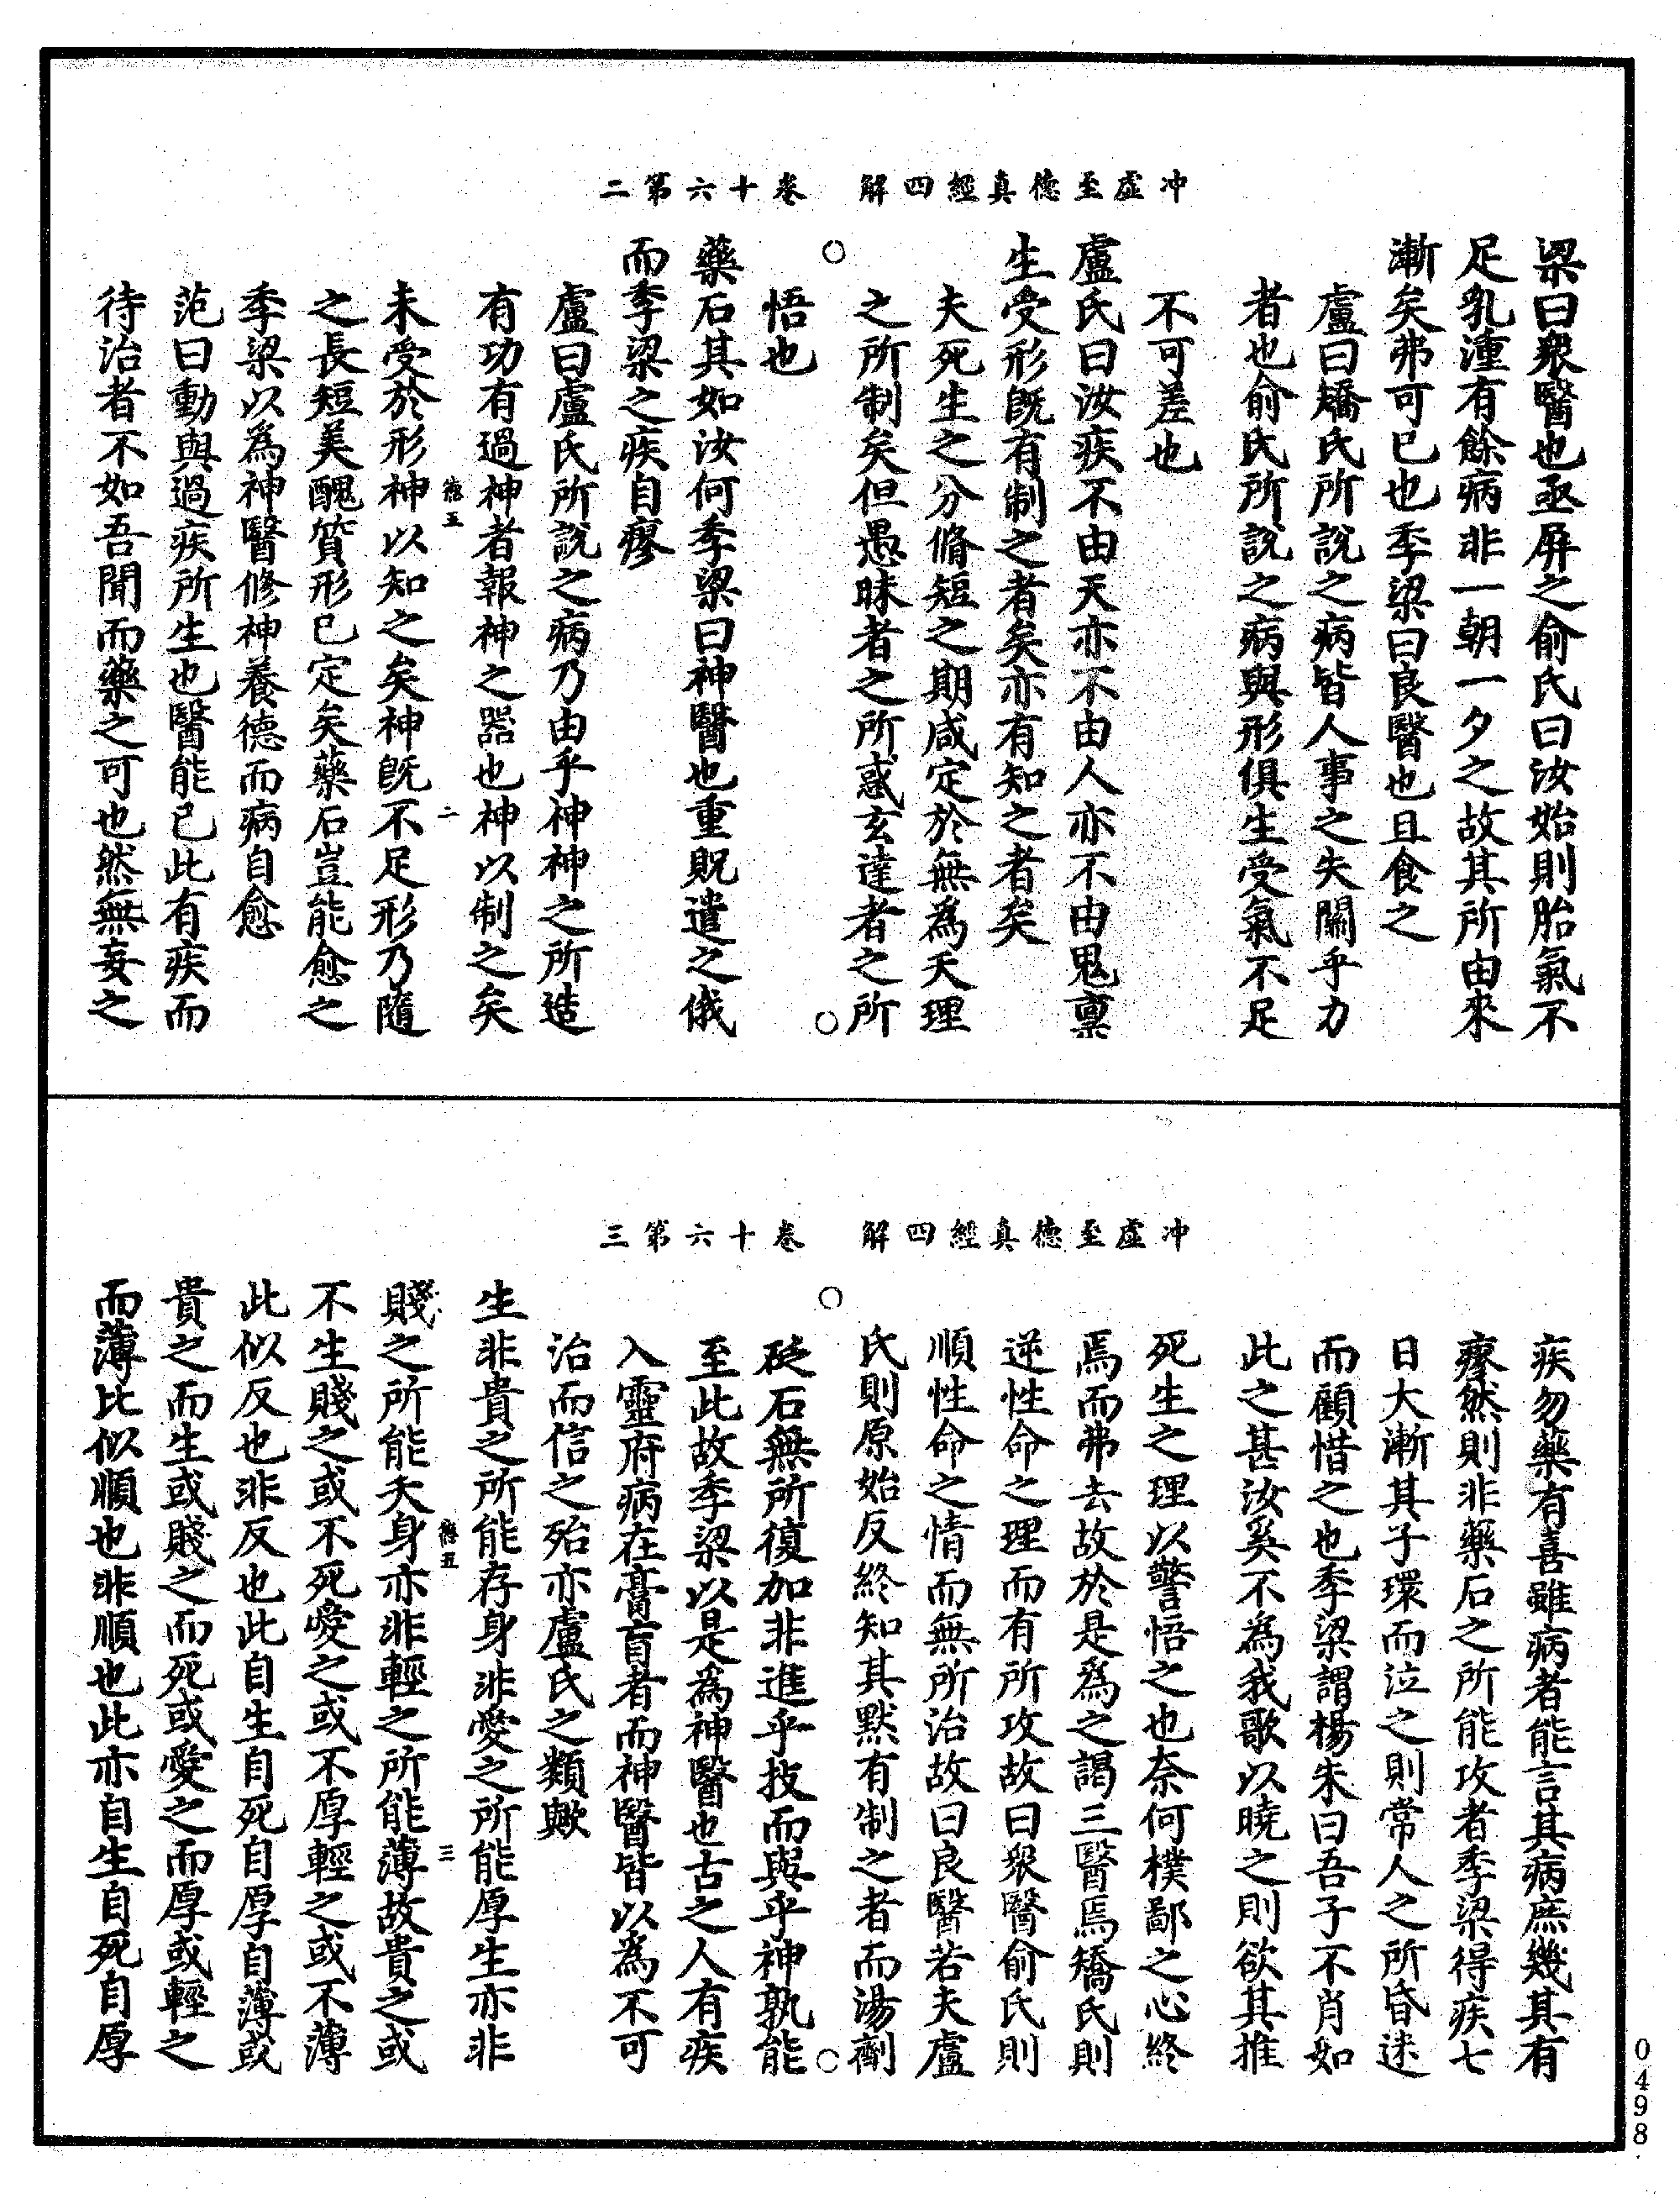 冲虛至德真經四解　卷十六第二
梁曰眾醫也亟屏之俞氏曰汝始則胎氣不
足乳湩有餘病非一朝一夕之故其所由來
漸矣弗可已也季梁曰良醫也且食之
盧曰矯氏所說之病皆人事之失關乎力
者也俞氏所說之病與形俱生受氣不足
不可差也
盧氏曰汝疾不由天亦不由人亦不由鬼稟
生受形既有制之者矣亦有知之者矣
夫死生之分脩短之期咸定於無為天理
之所制矣但愚昧者之所惑玄達者之所
悟也
藥石其如汝何季梁曰神醫也重貺遣之俄
而季梁之疾自瘳
盧曰盧氏所說之病乃由乎神神之所造
有功有過神者報神之器也神以制之矣
德五　二
未受於形神以知之矣神既不足形乃隨
之長短美醜質形已定矣藥石豈能愈之
季梁以為神醫修神養德而病自愈
范曰動與過疾所生也醫能已此有疾而
待治者不如吾聞而藥之可也然無妄之
冲虛至德真經四解　卷十六第三
疾勿藥有喜雖病者能言其病庶幾其有
瘳然則非藥石之所能攻者季梁得疾七
日大漸其子環而泣之則常人之所昏迷
而顧惜之也季梁謂楊朱曰吾子不肖如
此之甚汝奚不為我歌以曉之則欲其推
死生之理以警悟之也奈何樸鄙之心終
焉而弗去故於是為之謁三醫焉矯氏則
逆性命之理而有所攻故曰眾醫俞氏則
順性命之情而無所治故曰良醫若夫盧
氏則原始反終知其默有制之者而湯劑
砭石無所復加非進乎技而與乎神孰能
至此故季梁以是為神醫也古之人有疾
入靈府病在膏肓者而神醫皆以為不可
治而信之殆亦盧氏之類歟
生非貴之所能存身非愛之所能厚生亦非
德五　三
賤之所能夭身亦非輕之所能薄故貴之或
不生賤之或不死愛之或不厚輕之或不薄
此似反也非反也此自生自死自厚自薄或
貴之而生或賤之而死或愛之而厚或輕之
而薄比似順也非順也此亦自生自死自厚
0498